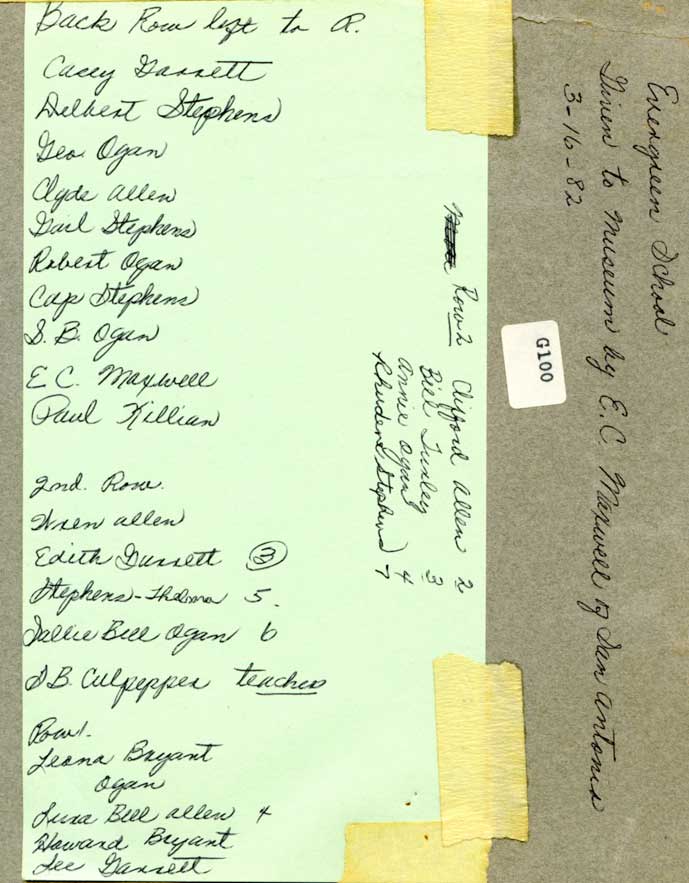 Back Row left to R.
Casey Garrett
Delbert Stephens
Geo. Ogan
Clyde Allen
Garl Stephens
Robert Ogan
Cap Stephens
S. B. Ogan
E C. Maxwell
Paul Killian
2nd. Row.
Wren Allen
Edith Garrett 3
Stephens - Thelma 5.
Sallie Bell Ogan 6
S B. Culpepper teacher
Row 1.
Leona Bryant
Ogan
Lura Bell Allen 4
Howard Bryant
Lee Garrett
Row 2 Clifford Allen 2
Bill 3
Annie Ogan 4
Stephens 7
G100
Evergreen School
Given to Museum by E.C. Maxwell of San Antonio
3-16-82